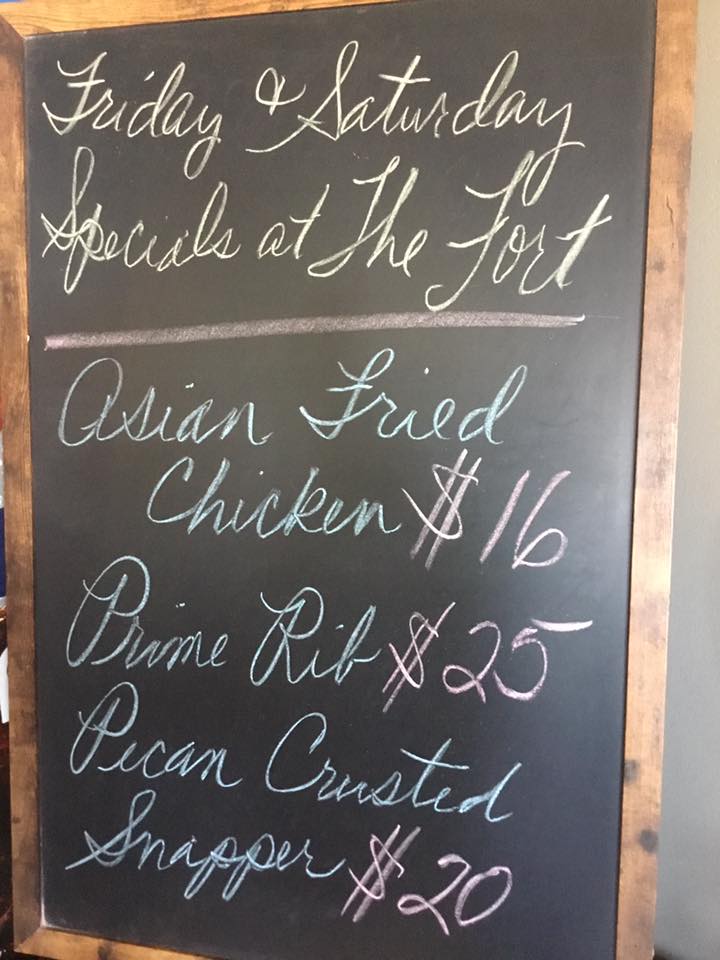 Friday & Saturday
Specials at The Fort
Asian Fried
Chicken $16
Prime Rib $25
Pecan Crusted
Snapper $20